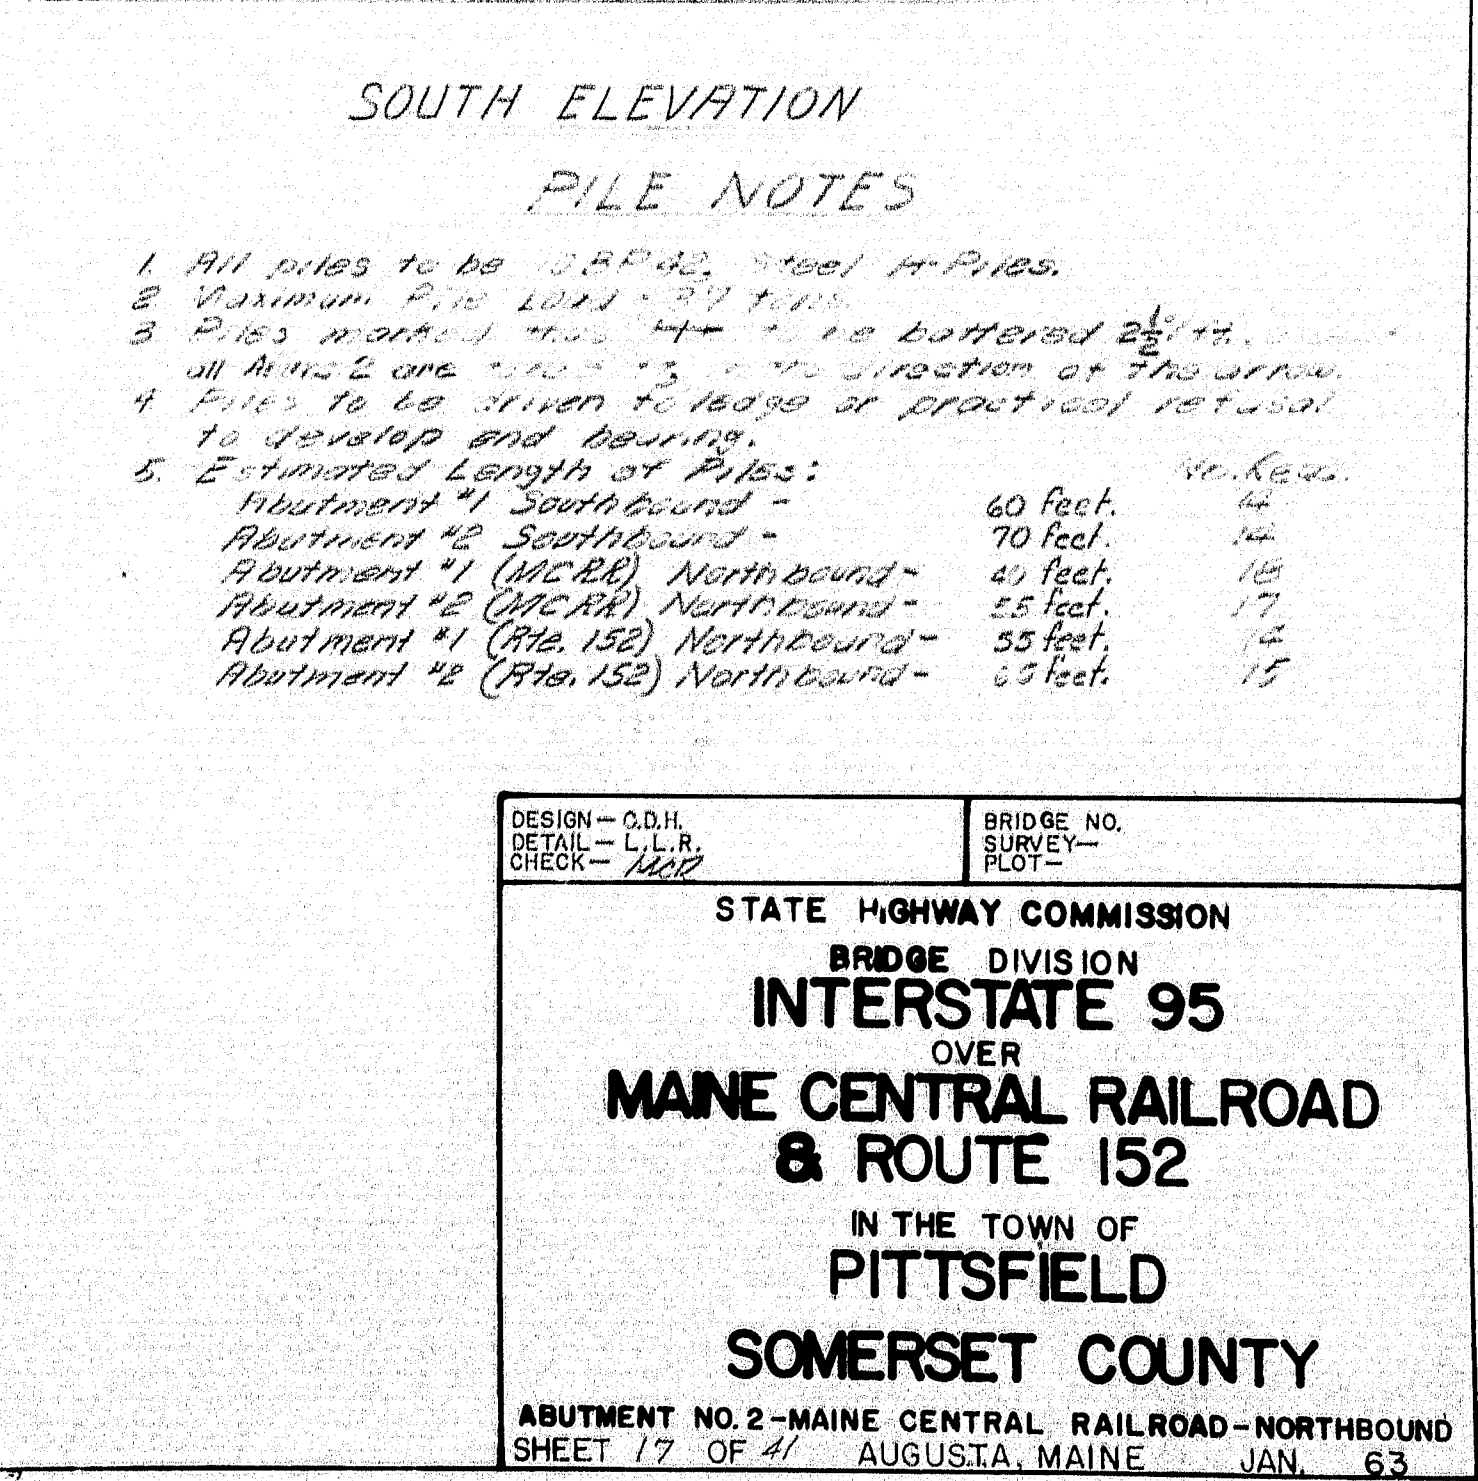 SOUTH ELEVATION
PILE NOTES
1. All piles to be 10 BP 42, Steel H-Piles.
2 Maximum Pile Load - tons
3 Piles marked thus to be battered 2 1/2"/ft.
all are in the direction of the arrow.
4 Piles to be driven to ledge or practical refusal
to develop end bearing.
5. Estimated Length of Piles: No. Req.
Abutment #1 Southbound - 60 feet.
Abutment #2 Southbound - 70 feet. 14
Abutment #1 (MCRR) Northbound - 40 feet. 18
Abutment #2 (MCRR) Northbound - 55 feet. 17
Abutment #1 (Rte. 152) Northbound - 55 feet.
Abutment #2 (Rte. 152) Northbound - 65 feet. 15
DESIGN - C.D.H.
DETAIL - L.L.R.
CHECK - MCD
BRIDGE NO.
SURVEY -
PLOT -
STATE HIGHWAY COMMISSION
BRIDGE DIVISION
INTERSTATE 95
OVER
MAINE CENTRAL RAILROAD
& ROUTE 152
IN THE TOWN OF
PITTSFIELD
SOMERSET COUNTY
ABUTMENT NO. 2 - MAINE CENTRAL RAILROAD - NORTHBOUND
SHEET 17 OF 41 AUGUSTA, MAINE JAN. 63